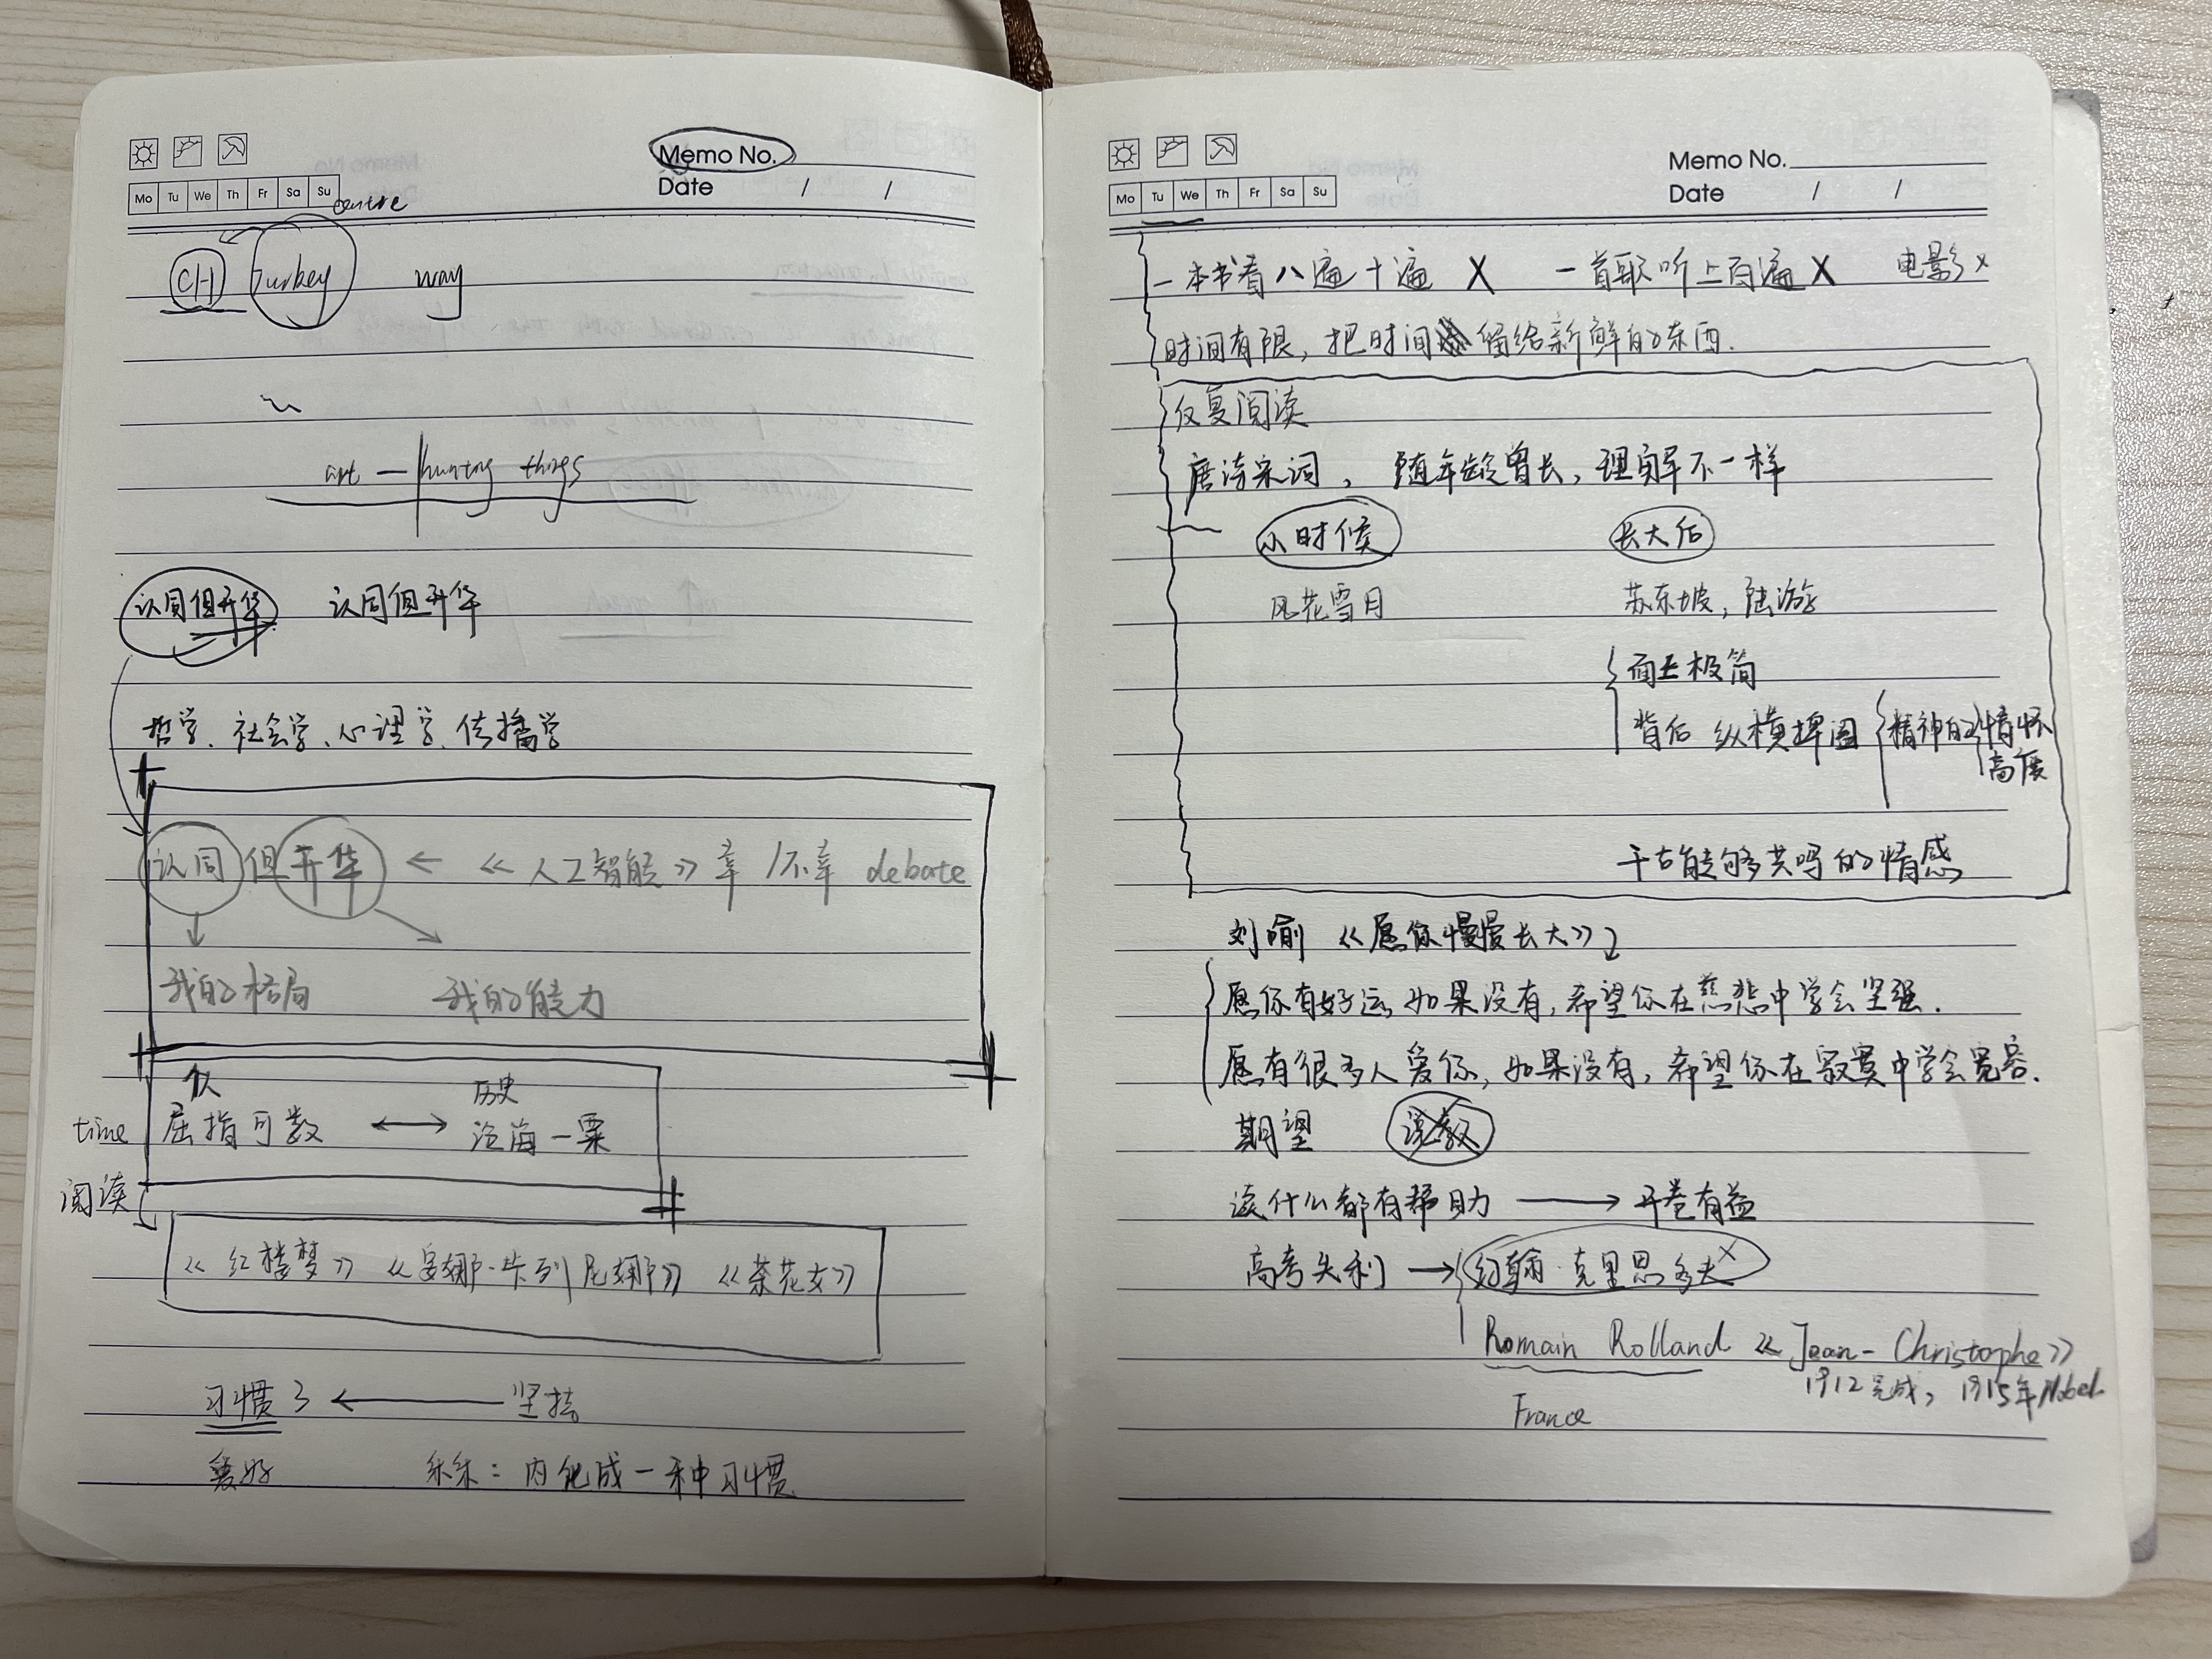 Memo No.
Date / /
Mo Tu We Th Fr Sa Su
centre
CH Turkey way
art — hunting things
认同但升华 认同但升华
哲学、社会学、心理学、传播学
认同但升华 ← 《人工智能》幸/不幸 debate
我的格局 我的能力
历史
time 屈指可数 ↔ 沧海一粟
阅读
《红楼梦》《安娜·卡列尼娜》《茶花女》
习惯了 ← 坚持
爱好 乐乐：内化成一种习惯
Memo No.
Date / /
Mo Tu We Th Fr Sa Su
一本书看八遍十遍 X 一首歌听上百遍 X 电影 X
时间有限，把时间留给新鲜的东西.
反复阅读
唐诗宋词，随年龄曾长，理解不一样
小时候 长大后
风花雪月 苏东坡，陆游
面上极简
背后 纵横捭阖 精神的 情怀
高度
千古能够共鸣的情感
刘瑜《愿你慢慢长大》
愿你有好运，如果没有，希望你在慈悲中学会坚强.
愿有很多人爱你，如果没有，希望你在寂寞中学会宽容.
期望 说教
读什么都有帮助 → 开卷有益
高考失利 → 约翰·克里思多夫 X
Romain Rolland 《Jean-Christophe》
1912完成，1915年Nobel
France